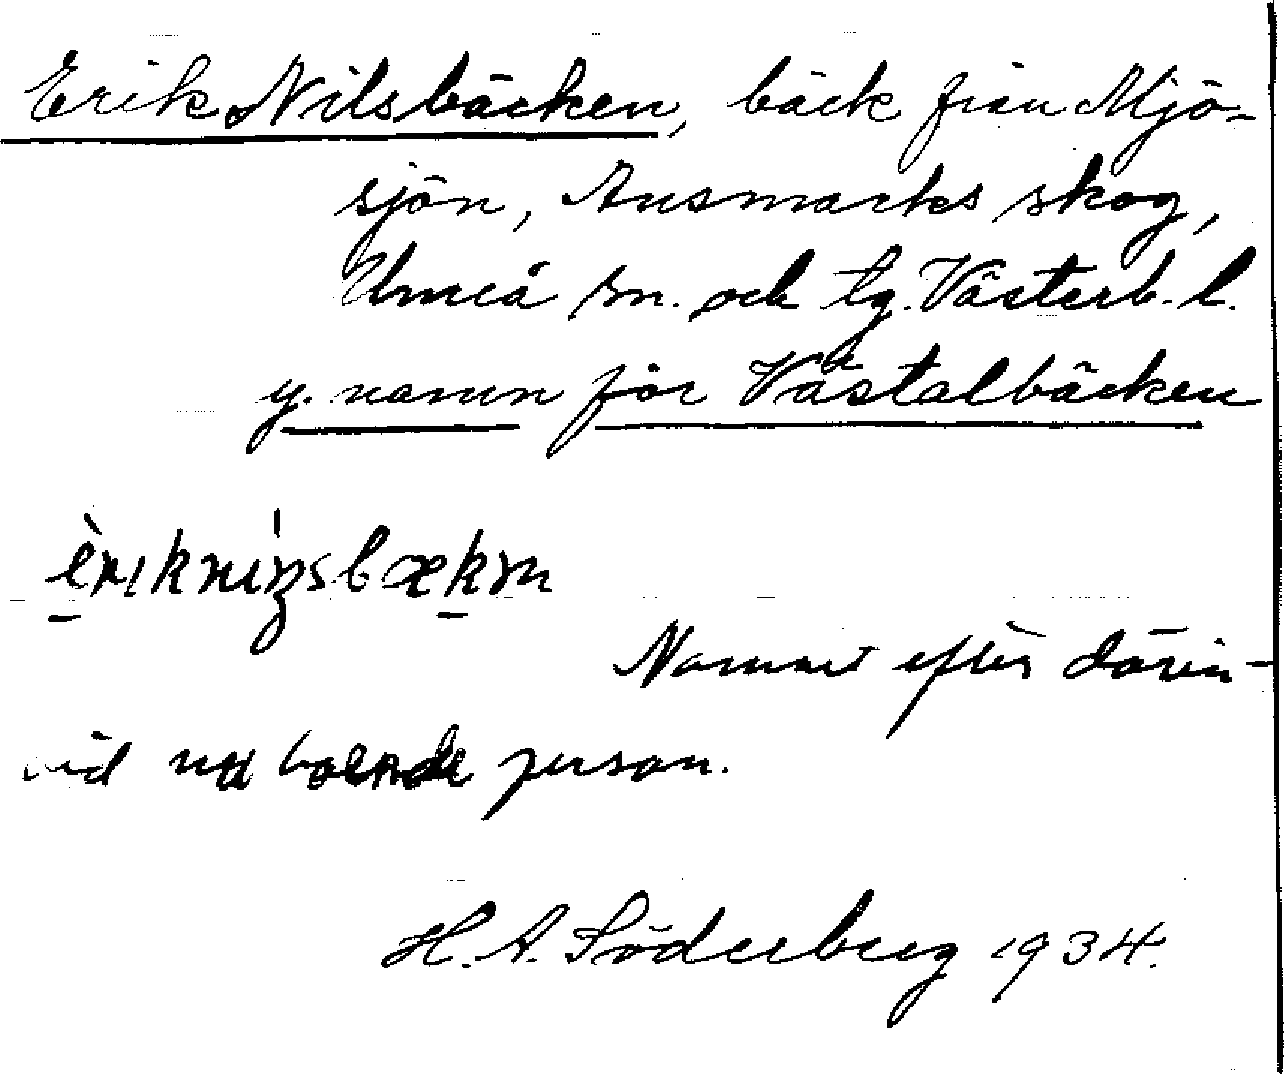 Erik Nilsbäcken, bäck från Mjö-
sjön, Ansmarks skog,
Umeå sn. och tg. Västerb. l.
y. namn för Västalbäcken
Namnet efter därin-
vid boende person.
H. A. Söderberg 1934.